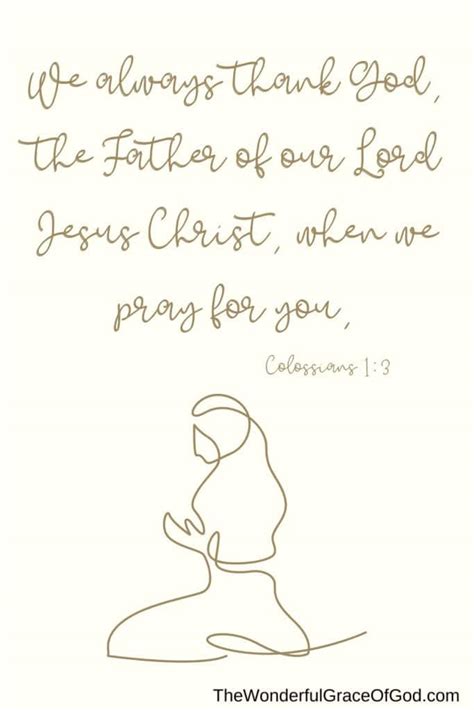 We always thank God,
the Father of our Lord
Jesus Christ, when we
pray for you,
Colossians 1:3
TheWonderfulGraceOfGod.com